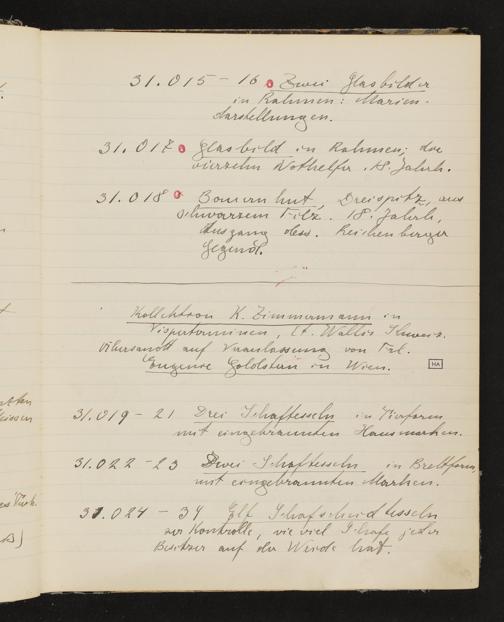 31.015 - 16 Zwei Glasbilder
in Rahmen: Marien-
darstellungen.
31.017 Glasbild in Rahmen; die
vierzehn Nothelfer. 18. Jahrh.
31.018 Bauernhut, Dreispitz, aus
schwarzem Filz. 18. Jahrh,
Ausgang dess. Reichenberger
Gegend.
Kollektion K. Zimmermann in
Visperterminen, Ct. Wallis Schweiz.
übersandt auf Veranlassung von Frl.
Eugenie Goldstern in Wien.
HA
31.019 - 21 Drei Schaftesseln in
mit eingebrannten Hausmarken.
31.022 - 23 Zwei Schaftesseln in Brettform,
mit eingebrannten Marken.
31.024 - 34 Elf Schafscheidtesseln
zur Kontrolle, wie viel Schafe jeder
Besitzer auf der Weide hat.